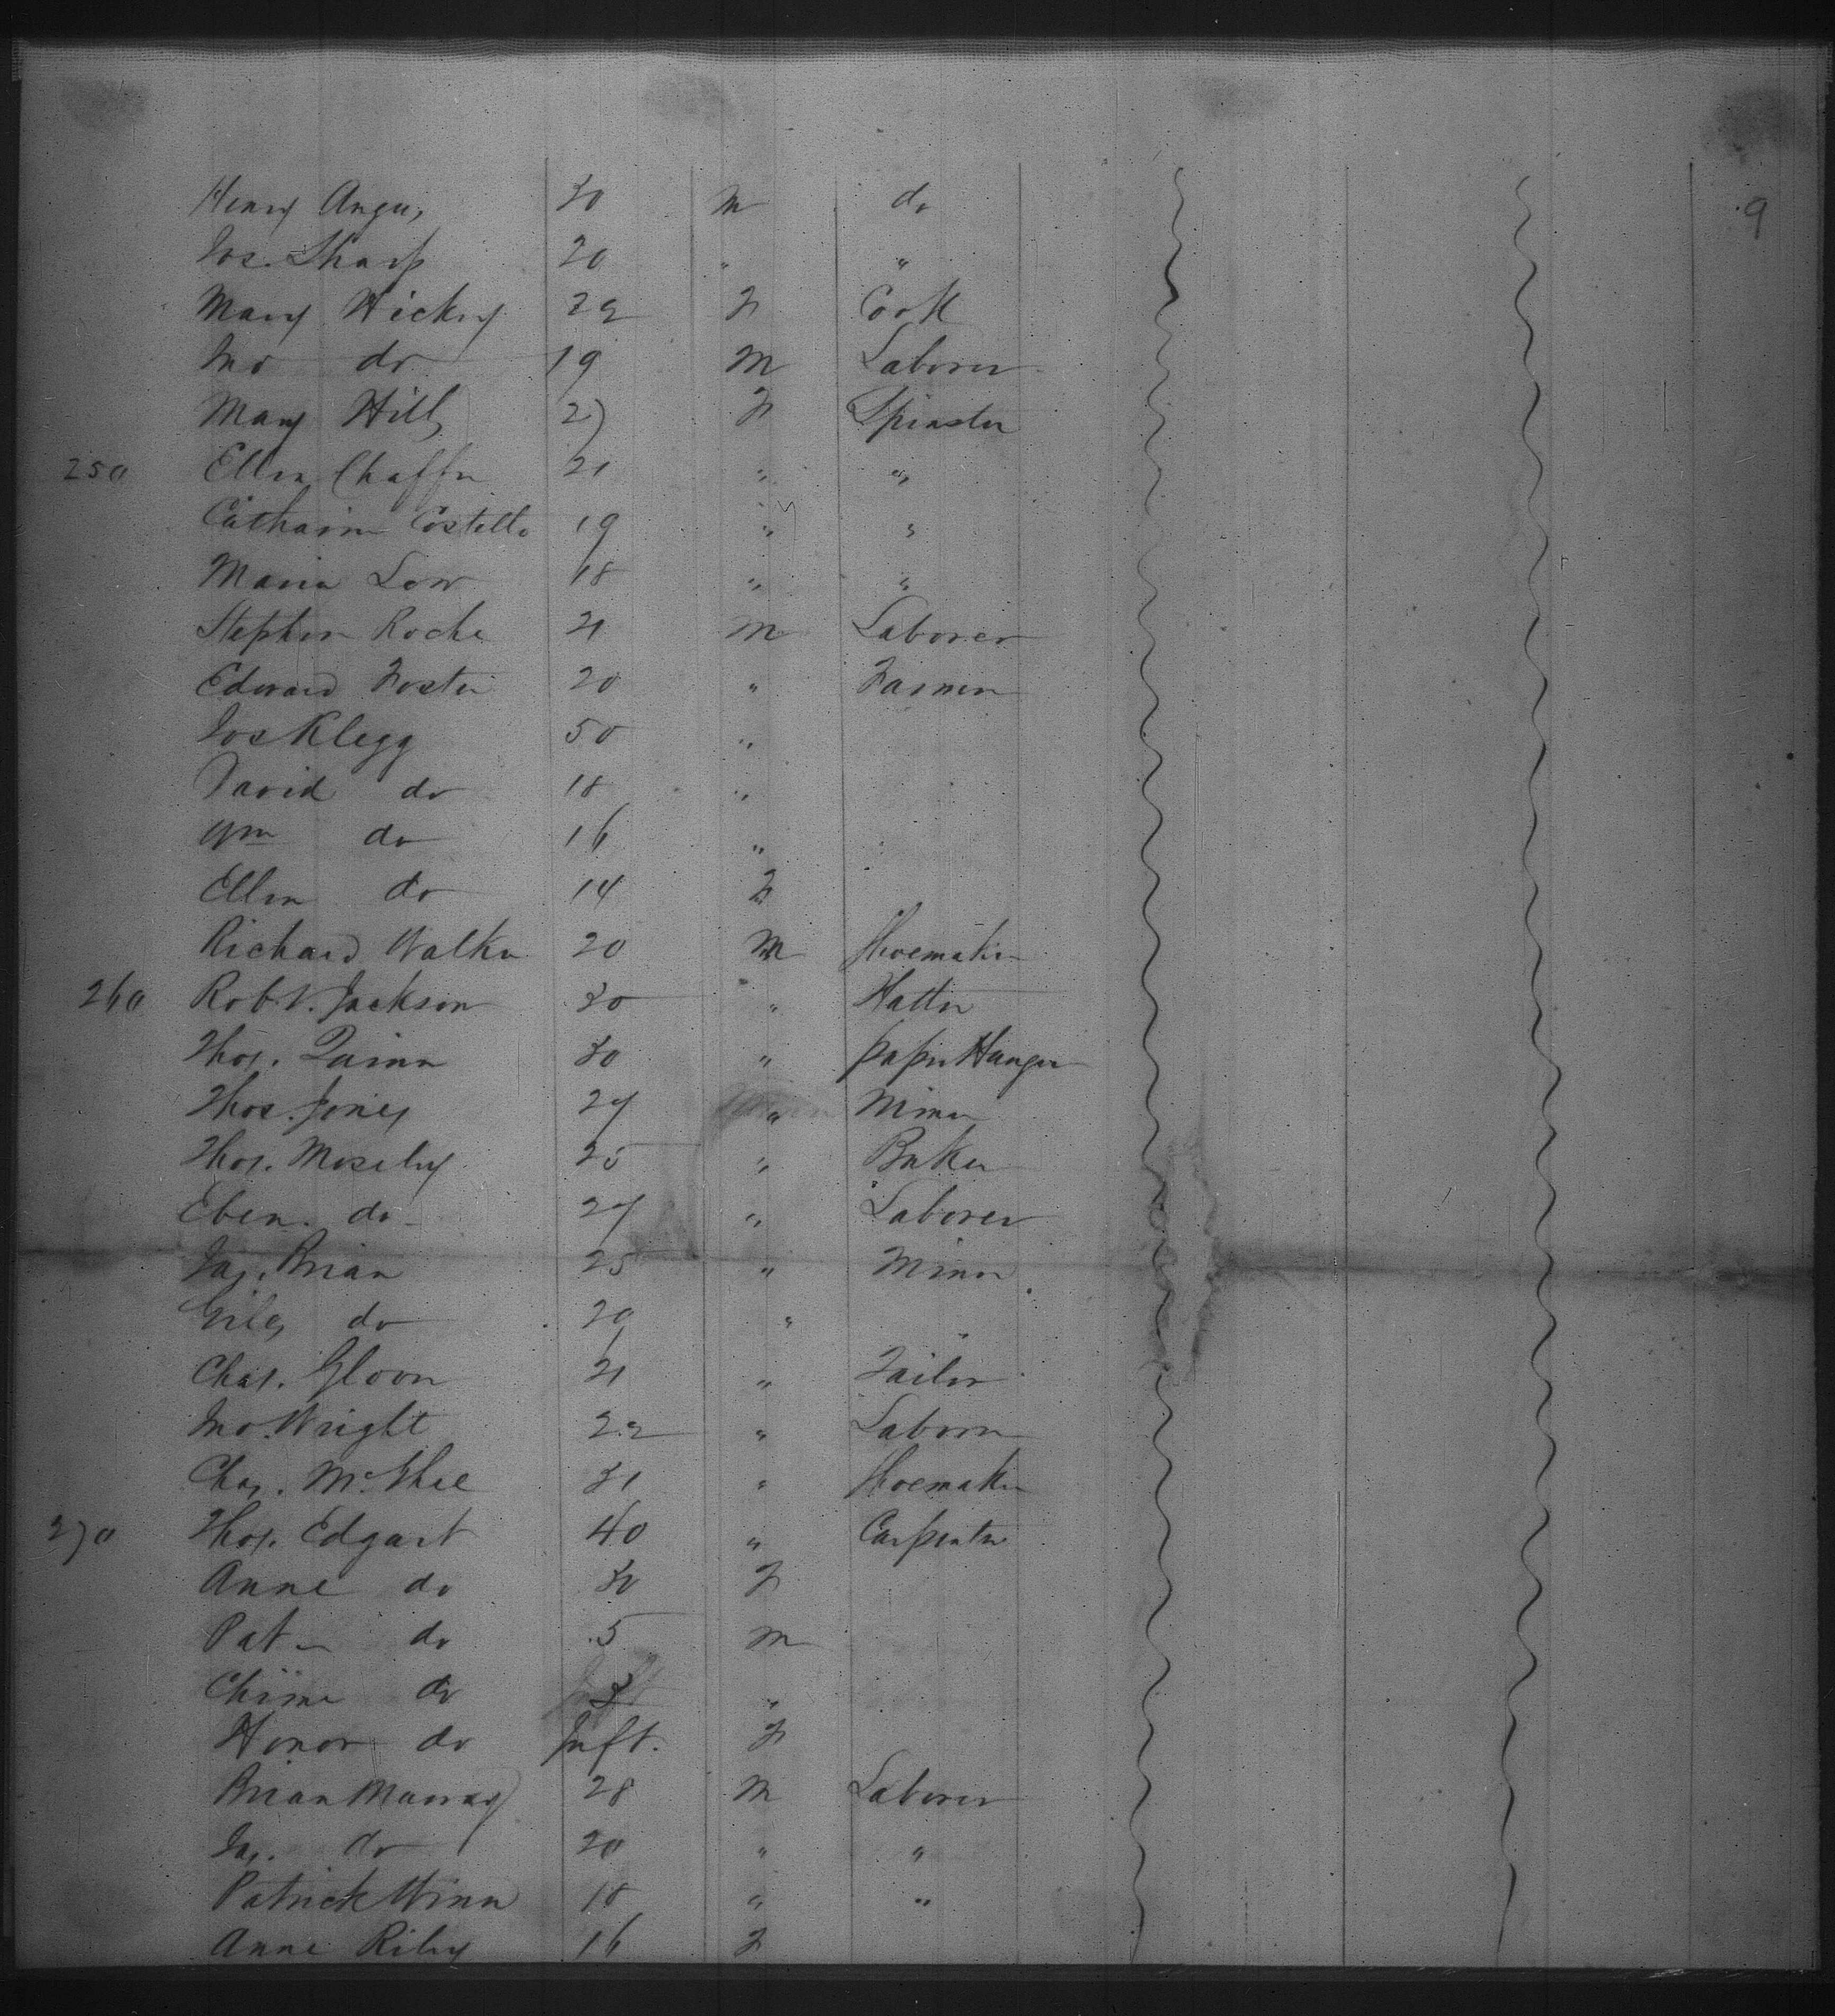 9
Henry Angus 30 m do
Jos. Sharp 20 " "
Mary Hickey 22 F Cook
Jno do 19 M Laborer
Mary Hill 27 F Spinster
250 Ellen Chaffer 21 " "
Catharine Costello 19 " "
Maria Low 18 " "
Stephen Roche 21 m Laborer
Edward Foster 20 " Farmer
Jos Klegg 50 "
David do 18 "
Wm do 16 "
Ellen do 14 F
Richard Walker 20 M Shoemaker
260 Robt. Jackson 30 " Hatter
Thos. Quinn 30 " paper Hanger
Thos. Jones 27 " Miner
Thos. Moseley 25 " Baker
Eben. do 27 " Laborer
Jas. Brian 25 " Miner
Giles do 29 " "
Chas. 21 " Tailor
Jno. Wright 22 " Laborer
Chas. McGhee 31 " Shoemaker
270 Thos. Edgart 40 " Carpenter
Anne do 30 F
Pat do 5 m
do 3 "
Honor do Inft. F
Brian Murray 28 M Laborer
Jas. do 20 " "
Patrick Winn 18 " "
Anne Riley 16 F